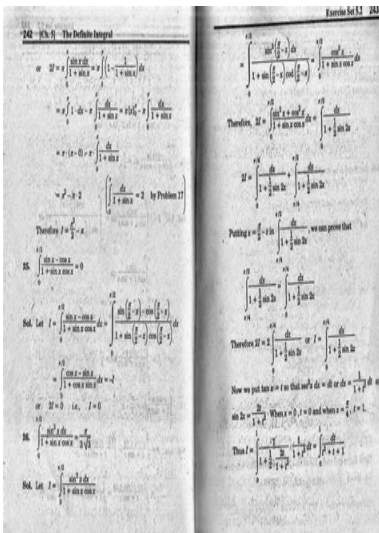 242 [Ch. 5] The Definite Integral
or 2I = π∫₀^π sin x dx / (1 + sin x) = π∫₀^π (1 − 1/(1 + sin x)) dx
= π∫₀^π 1 · dx − π∫₀^π dx/(1 + sin x) = π[x]₀^π − π∫₀^π dx/(1 + sin x)
= π · (π − 0) − π∫₀^π dx/(1 + sin x)
= π² − π · 2 [∫₀^π dx/(1 + sin x) = 2 by Problem 27]
Therefore I = π²/2 − π.
25. ∫₀^{π/2} (sin x − cos x)/(1 + sin x cos x) = 0
Sol. Let I = ∫₀^{π/2} (sin x − cos x)/(1 + sin x cos x) dx = ∫₀^{π/2} (sin(π/2 − x) − cos(π/2 − x))/(1 + sin(π/2 − x) cos(π/2 − x)) dx
= ∫₀^{π/2} (cos x − sin x)/(1 + cos x sin x) dx = −I
or 2I = 0 i.e., I = 0
26. ∫₀^{π/2} sin² x dx/(1 + sin x cos x) = π/(3√3)
Sol. Let I = ∫₀^{π/2} sin² x dx/(1 + sin x cos x)
Exercise Set 5.2 243
= ∫₀^{π/2} sin²(π/2 − x) dx/(1 + sin(π/2 − x) cos(π/2 − x)) = ∫₀^{π/2} cos² x/(1 + sin x cos x) dx
Therefore, 2I = ∫₀^{π/2} (sin² x + cos² x)/(1 + sin x cos x) dx = ∫₀^{π/2} dx/(1 + ½ sin 2x)
2I = ∫₀^{π/4} dx/(1 + ½ sin 2x) + ∫_{π/4}^{π/2} dx/(1 + ½ sin 2x)
Putting x = π/2 − z in ∫_{π/4}^{π/2} dx/(1 + ½ sin 2x), we can prove that
∫_{π/4}^{π/2} dx/(1 + ½ sin 2x) = ∫₀^{π/4} dx/(1 + ½ sin 2x)
Therefore 2I = 2∫₀^{π/4} dx/(1 + ½ sin 2x) or I = ∫₀^{π/4} dx/(1 + ½ sin 2x)
Now we put tan x = t so that sec² x dx = dt or dx = 1/(1 + t²) dt
sin 2x = 2t/(1 + t²). When x = 0, t = 0 and when x = π/4, t = 1.
Thus I = ∫₀¹ 1/(1 + ½ · 2t/(1 + t²)) · 1/(1 + t²) dt = ∫₀¹ dt/(t² + t + 1)